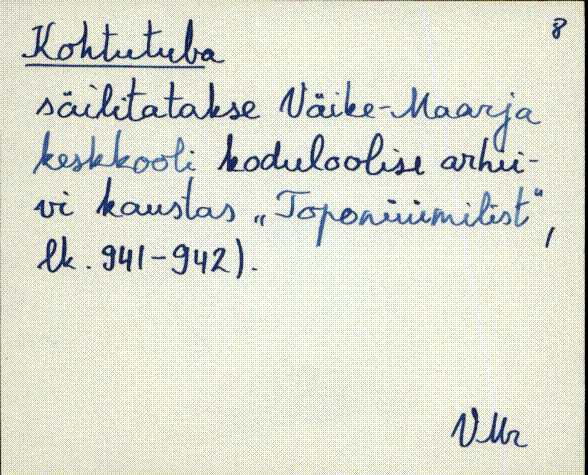 8
Kohtutuba
säilitatakse Väike-Maarja
keskkooli koduloolise arhii-
vi kaustas „Toponüümilist“,
lk. 941-942).
VMr